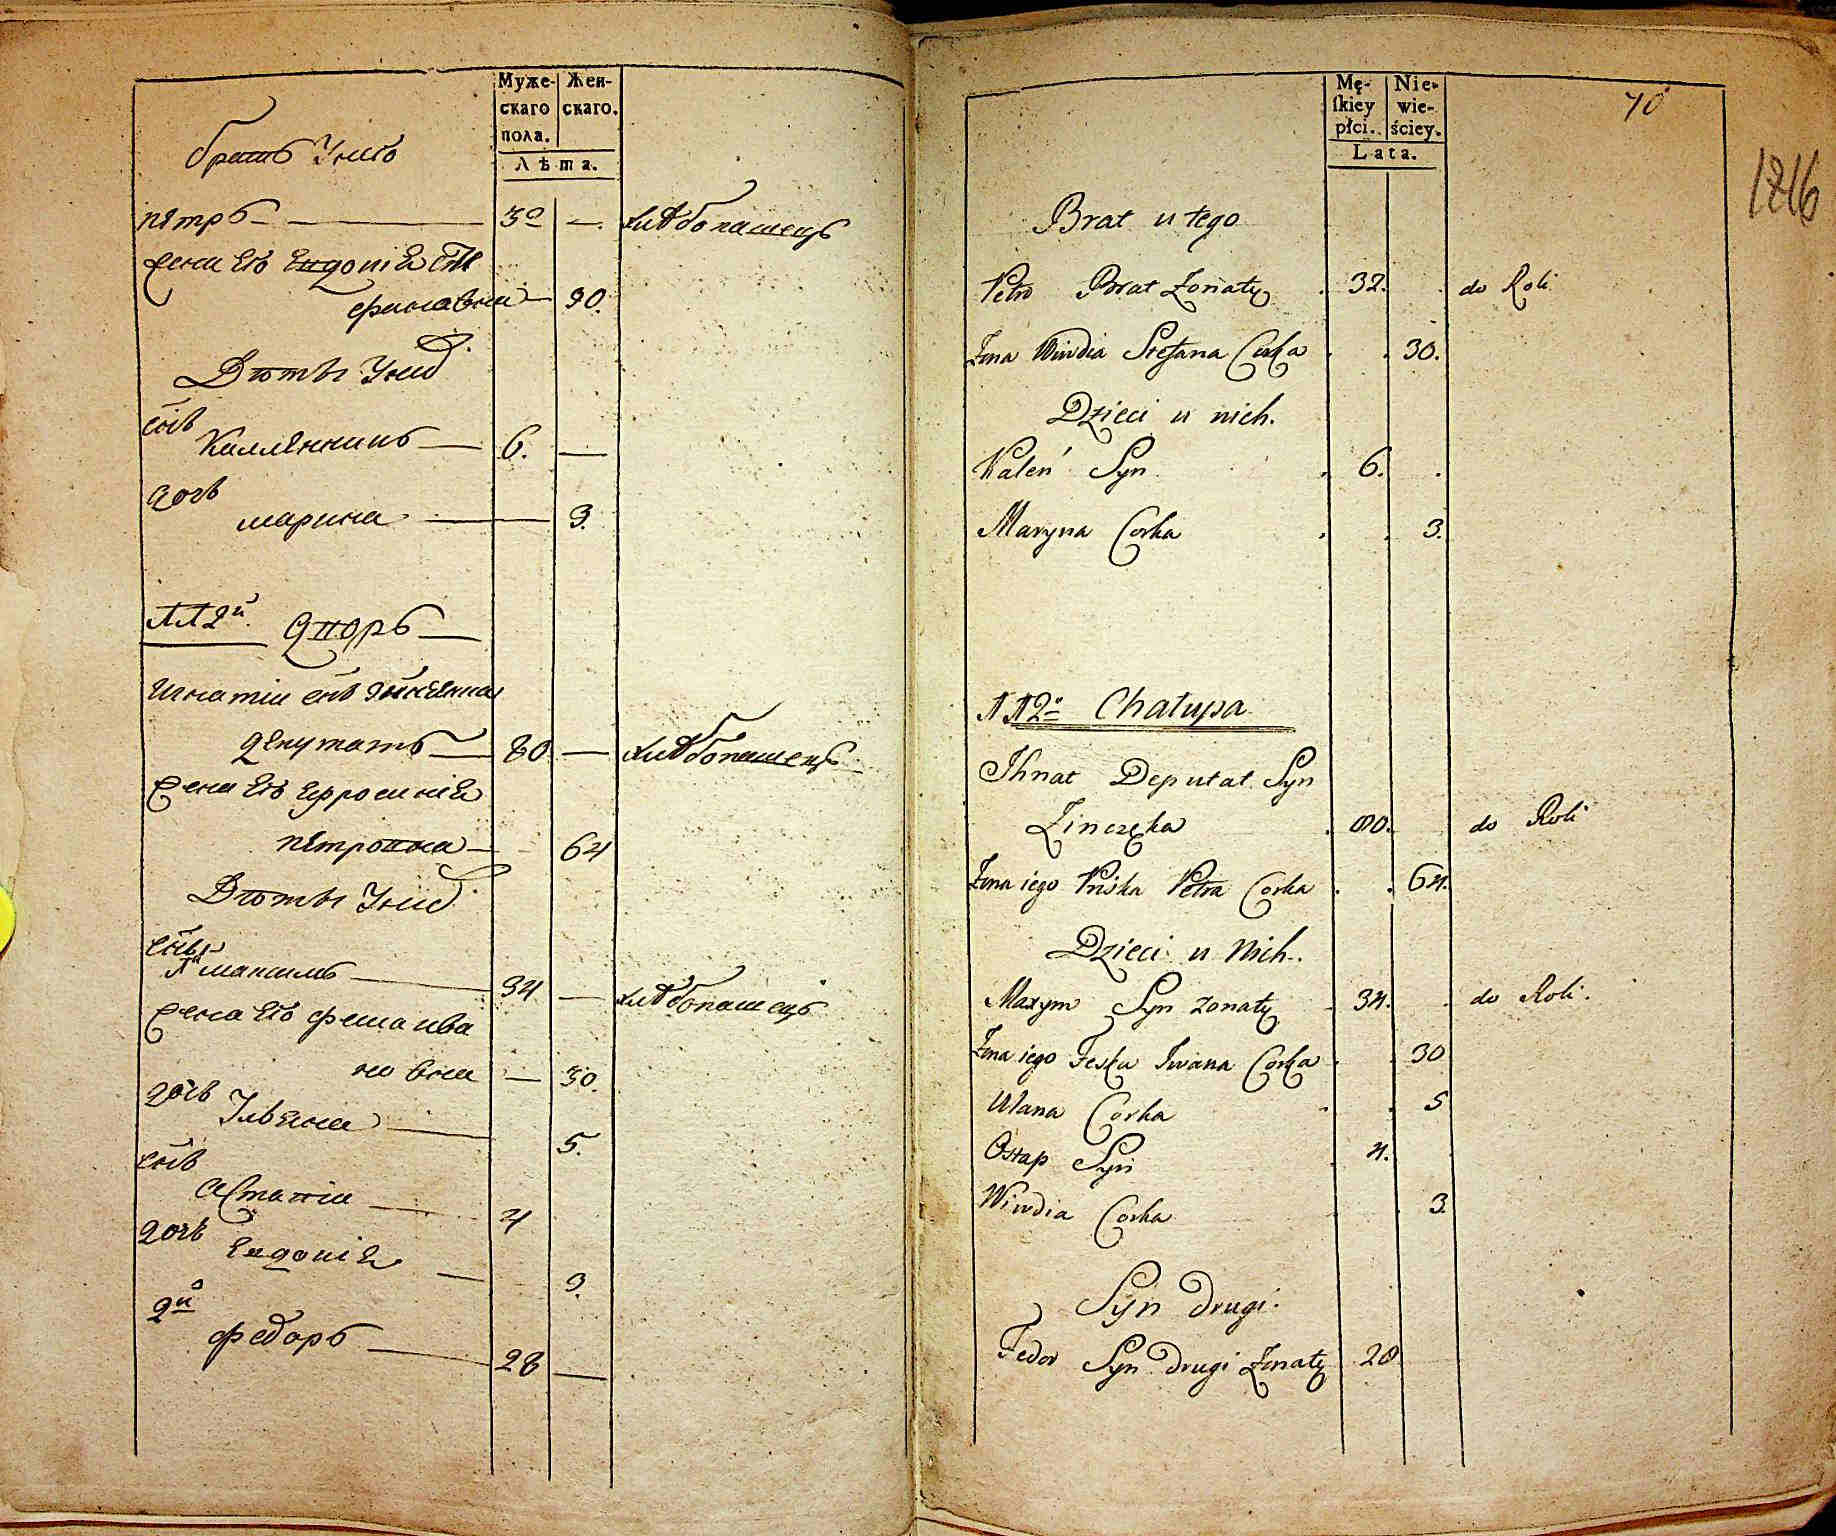 Муже-
скаго
пола.
Жен-
скаго.
Лѣта.
братъ У него
петръ 32 — хлѣбопашецъ
жена его Евдокіѧ Сте
фановна 30.
Дѣти У них
снъ
Каленникъ 6. —
дочь
марина 3.
№ 2й. дворъ
Игнатій снъ зѣнченка
депутатъ 80 — хлѣбопашецъ
жена его Ефросиніѧ
петровна 64
Дѣти У них
снъ
1й максимъ 34 — хлѣбопашецъ
жена его феска ива
новна — 30.
дочь
Ульѧна 5.
снъ
Астапій 4
дочь
Евдокіѧ 3.
2й
федоръ 28 —
Mę-
skiey
płci.
Nie-
wie-
ściey.
Lata.
70
1216
Brat u tego
Petro Brat Żonaty 32. do Roli
Żona Wiwdia Stefana Corka 30.
Dzieci u nich.
Kaleń Syn 6.
Maryna Corka 3.
N 2o Chałupa
Ihnat Deputat Syn
Zinczęka 80. do Roli
Żona iego Priska Petra Corka 64.
Dzieci u Nich.
Maxym Syn zonaty 34. do Roli.
Żona iego Feska Iwana Corka 30
Ulana Corka 5
Ostap Syn 4.
Wiwdia Corka 3.
Syn drugi.
Fedor Syn drugi Żonaty 28